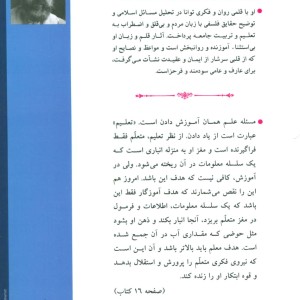 او با قلمی روان و فکری توانا در تحلیل مسائل اسلامی و
توضیح حقایق فلسفی با زبان مردم و بی‌قلق و اضطراب به
تعلیم و تربیت جامعه پرداخت. آثار قلم و زبان او
بی‌استثناء آموزنده و روانبخش است و مواعظ و نصایح او
که از قلبی سرشار از ایمان و عقیدت نشأت می‌گرفت،
برای عارف و عامی سودمند و فرحزاست.
مسئله علم همان آموزش دادن است. «تعلیم»
عبارت است از یاد دادن. از نظر تعلیم، متعلّم فقط
فراگیرنده است و مغز او به منزله انباری است که
یک سلسله معلومات در آن ریخته می‌شود. ولی در
آموزش، کافی نیست که هدف این باشد. امروز هم
این را نقص می‌شمارند که هدف آموزگار فقط این
باشد که یک سلسله معلومات، اطلاعات و فرمول
در مغز متعلّم بریزد، آنجا انبار بکند و ذهن او بشود
مثل حوضی که مقداری آب در آن جمع شده
است. هدف معلم باید بالاتر باشد و آن این است
که نیروی فکری متعلّم را پرورش و استقلال بدهد
و قوه ابتکار او را زنده کند.
(صفحه ۱۶ کتاب)